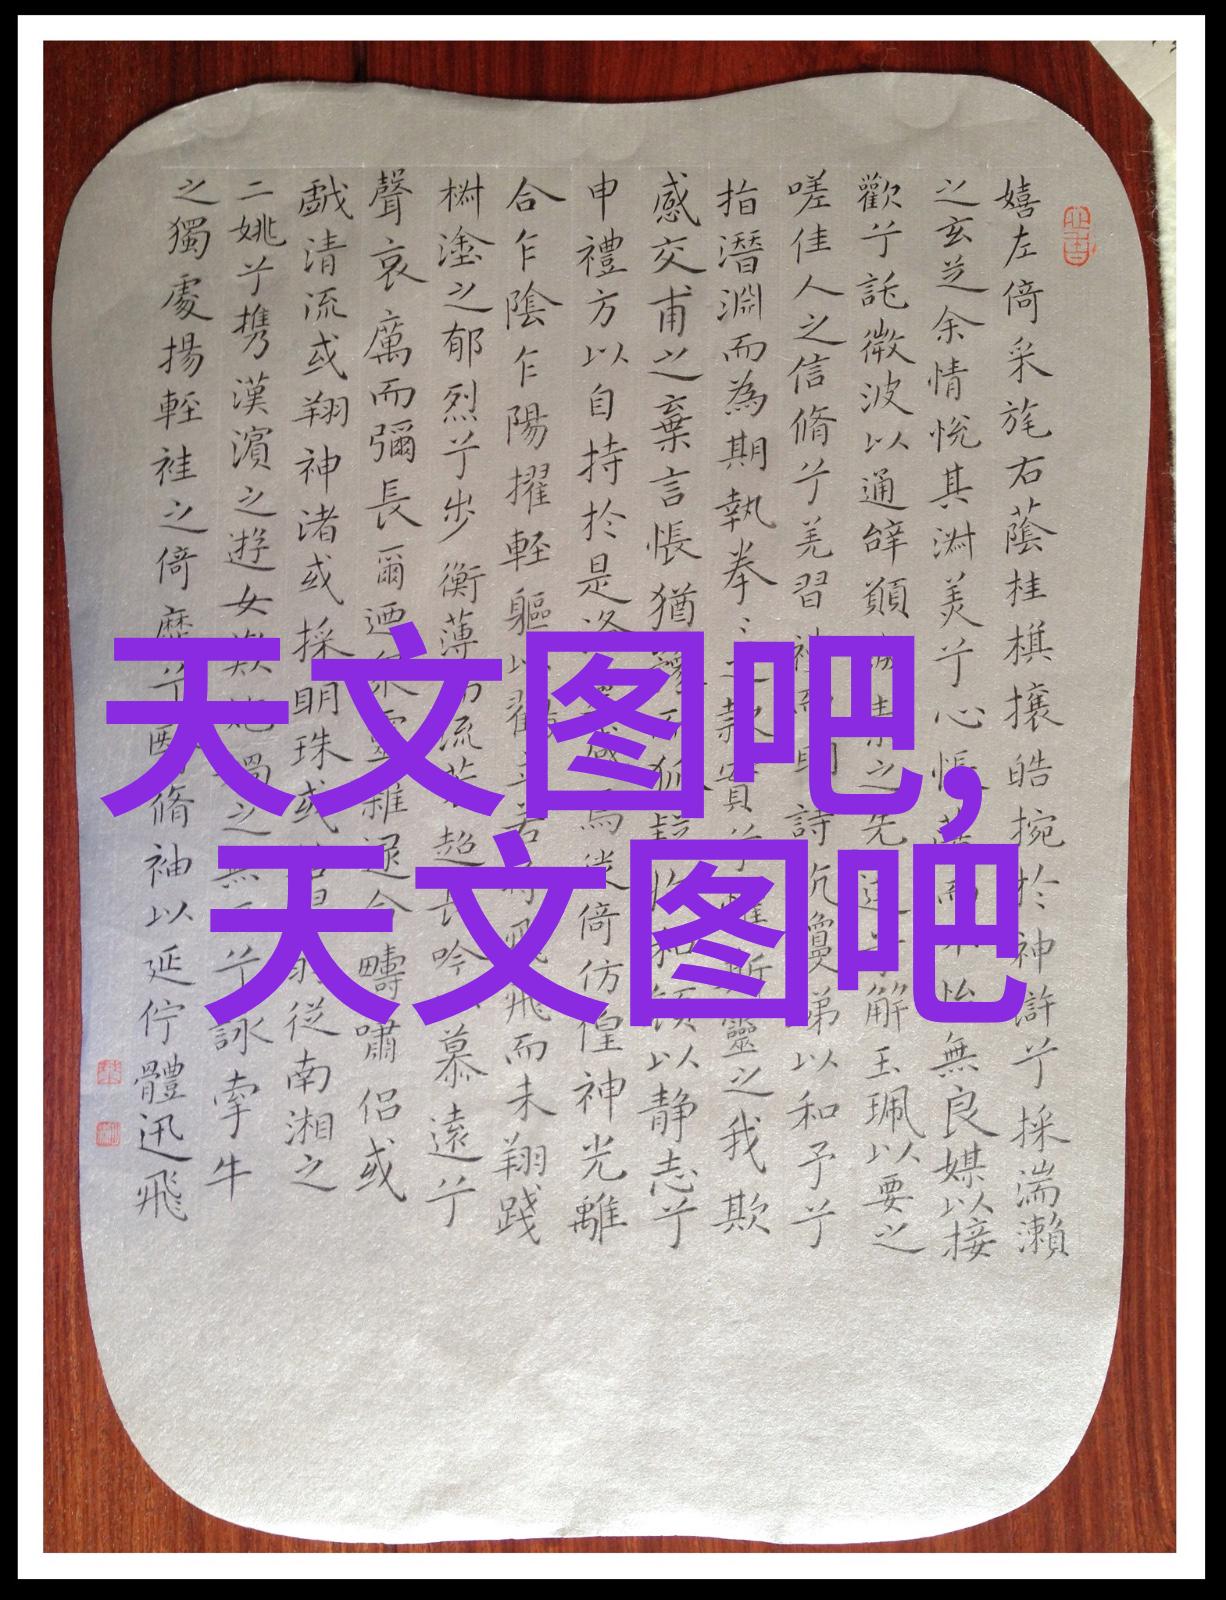 嬉左倚采旄右蔭桂棋攘皓捥於神滸兮採湍瀨
之玄芝余情悅其淑美兮心悵怡無良媒以接
歡兮託微波以通辭願之先解玉珮以要之
嗟佳人之信脩兮羌習詩抗瓊以和予兮
指潛淵而為期執拳之款實兮靈之我欺
感交甫之棄言悵猶以靜志兮
申禮方以自持於是洛焉徙倚仿徨神光離
合乍陰乍陽擢輕軀以立若飛而未翔踐
椒塗之郁烈兮步衡薄流超長吟慕遠兮
聲哀厲而彌長爾迺靈雜遝命疇嘯侶或
戲清流或翔神渚或採明珠或從南湘之
二姚兮携漢濱之遊女歎之無兮詠牽牛
之獨處揚輕袿之倚靡兮脩袖以延佇體迅飛
天文图吧,
天文图吧